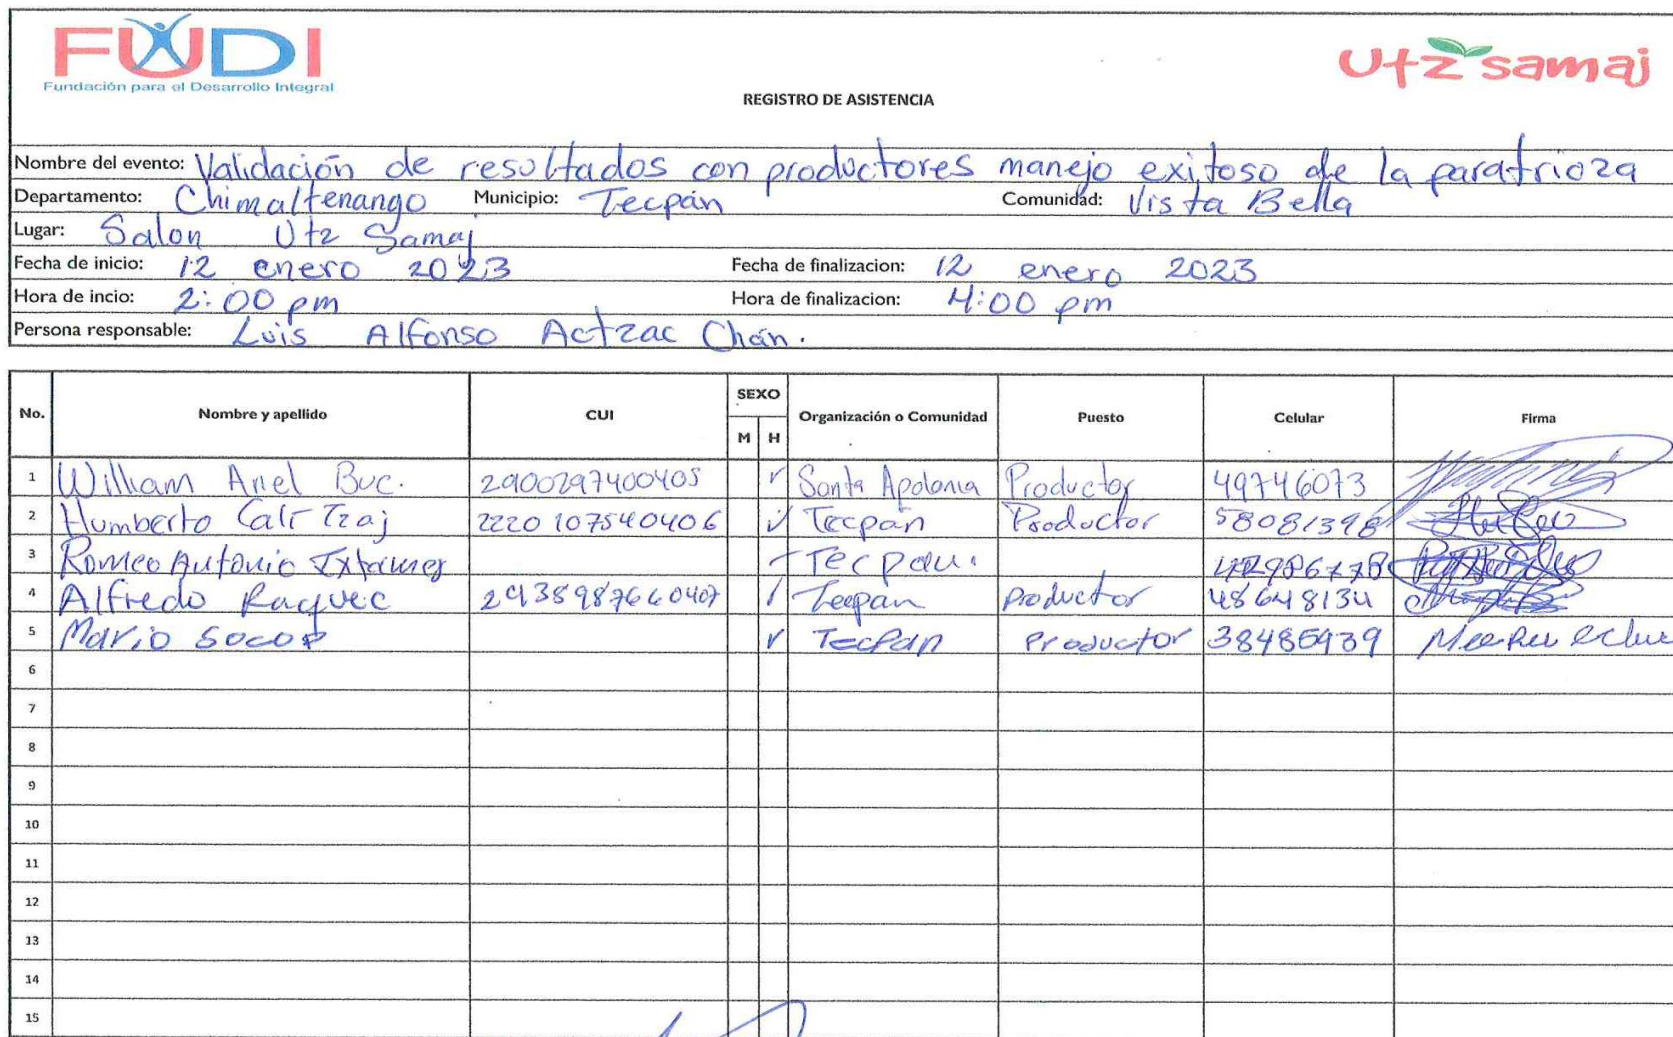 FUDI
Fundación para el Desarrollo Integral
Utz samaj
REGISTRO DE ASISTENCIA
Nombre del evento: Validación de resultados con productores manejo exitoso de la paratrioza
Departamento: Chimaltenango Municipio: Tecpán Comunidad: Vista Bella
Lugar: Salon Utz Samaj
Fecha de inicio: 12 enero 2023 Fecha de finalizacion: 12 enero 2023
Hora de incio: 2:00 pm Hora de finalizacion: 4:00 pm
Persona responsable: Luis Alfonso Actzac Chán.
No. Nombre y apellido CUI SEXO M H Organización o Comunidad Puesto Celular Firma
1 William Ariel Buc. 2900297400405 ✓ Santa Apolonia Productor 49746073
2 Humberto Calí Tzaj 2220107540406 ✓ Tecpán Productor 58081398
3 Romeo Antonio Tecpan.
4 Alfredo Raquec 2938987660407 / Tecpan productor 48648134
5 Mario Socop ✓ Tecpan Productor
6
7
8
9
10
11
12
13
14
15